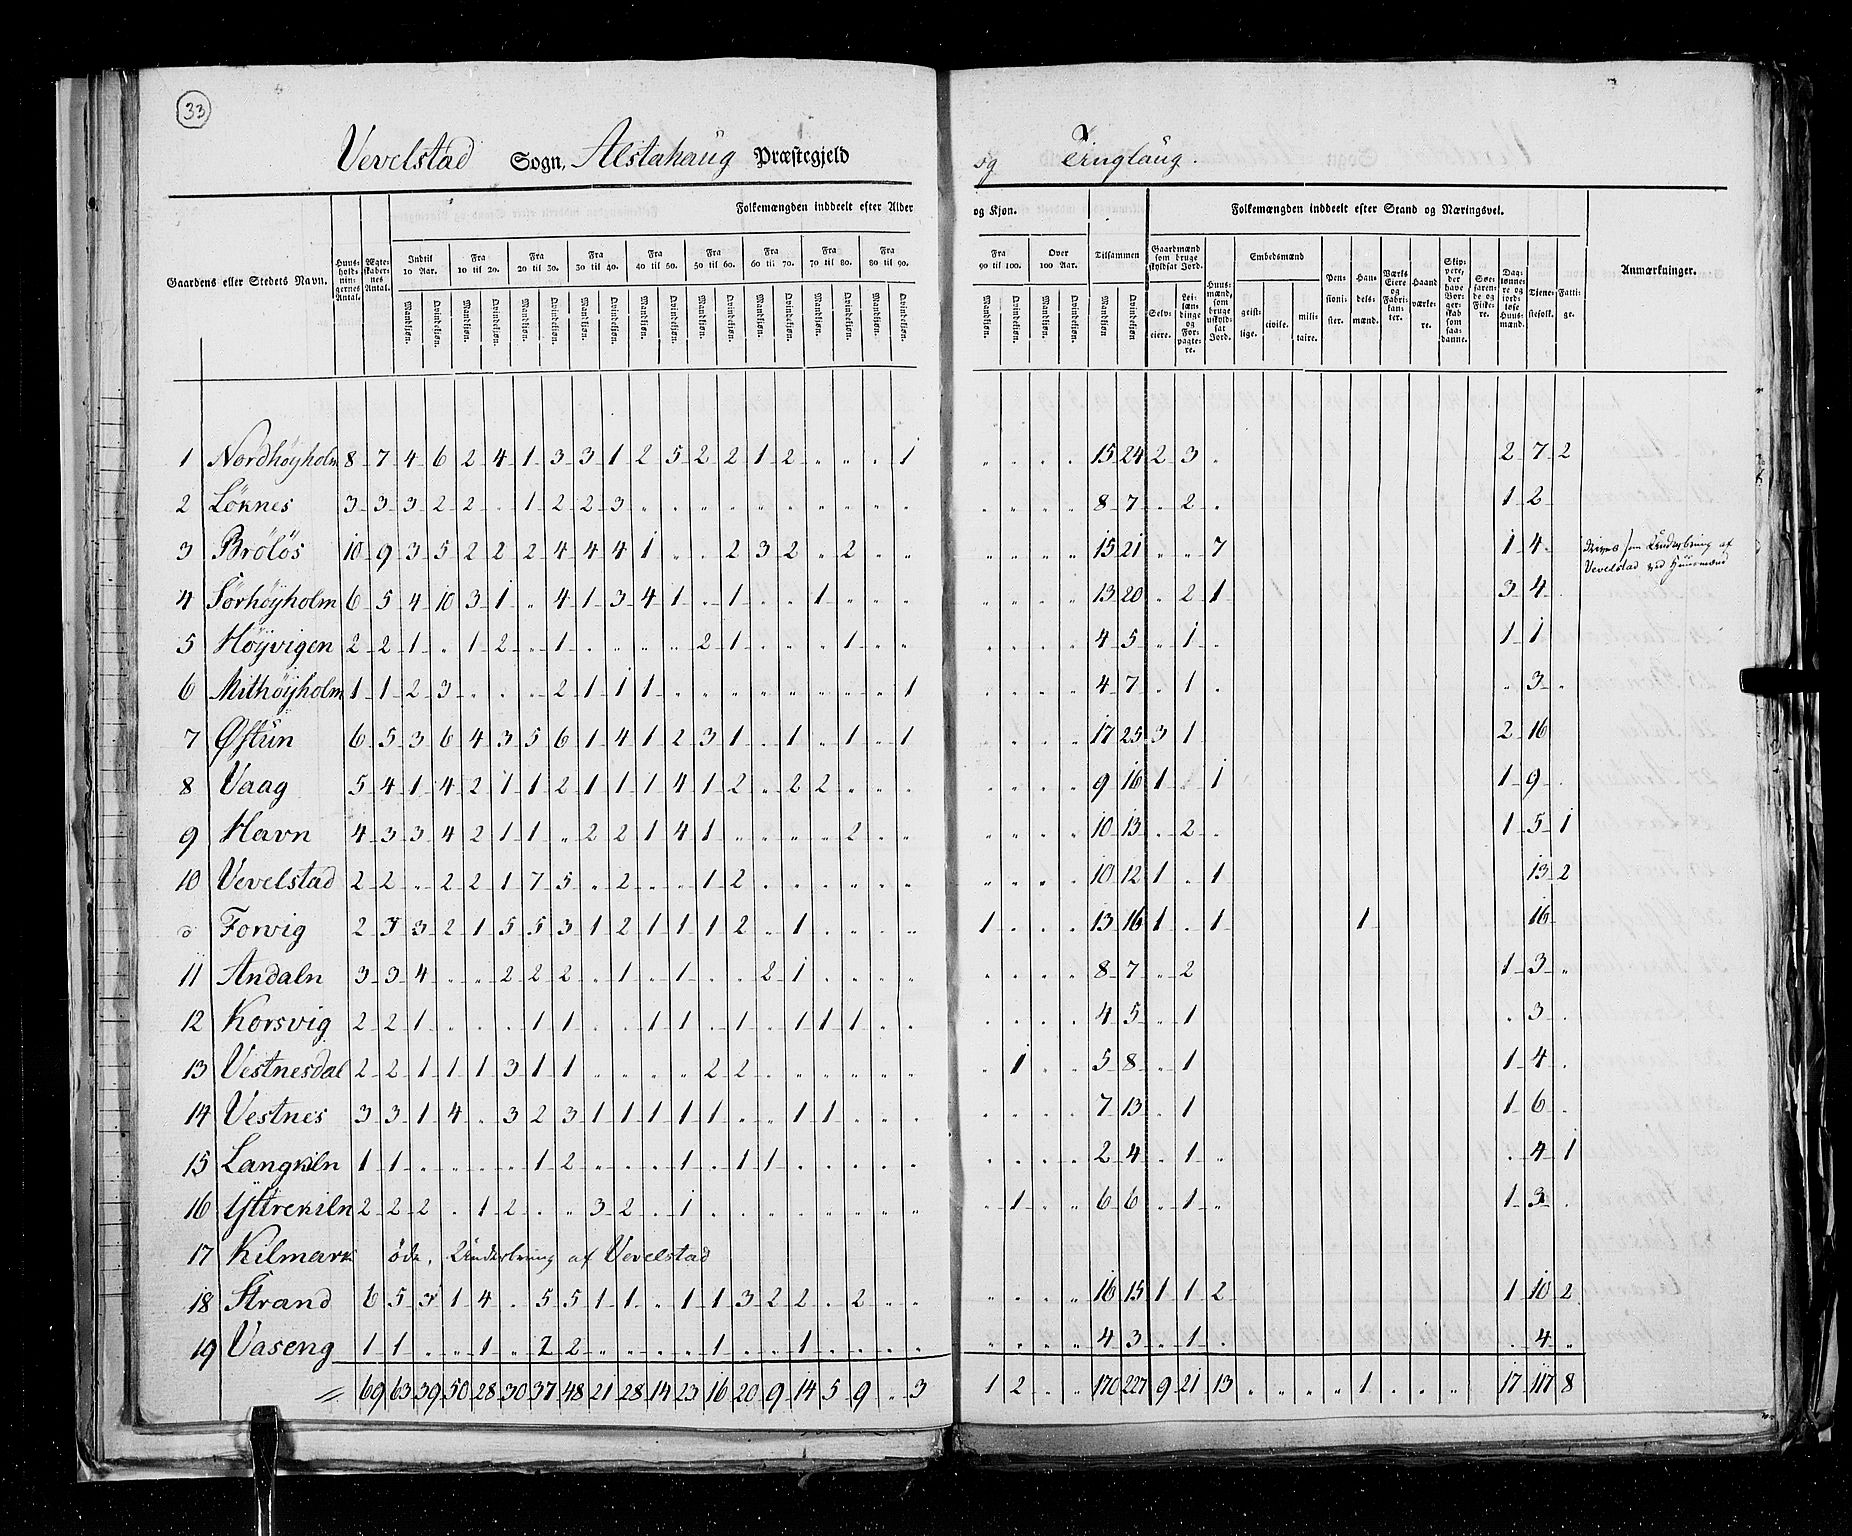 33
Vevelstad Sogn, Alstahaug Præstegjeld og Tinglaug.
Gaardens eller Stedets Navn. Huusholdningernes Antal. Ægteskabernes Antal. Folkemængden inddeelt efter Alder og Kjøn. Folkemængden inddeelt efter Stand og Næringsvei. Anmærkninger.
Indtil 10 Aar. Fra 10 til 20. Fra 20 til 30. Fra 30 til 40. Fra 40 til 50. Fra 50 til 60. Fra 60 til 70. Fra 70 til 80. Fra 80 til 90. Fra 90 til 100. Over 100 Aar. Tilsammen
Gaardmænd som bruge skyldsat Jord. Huusmænd, som bruge uskyldsat Jord. Embedsmænd Pensionister. Handelsmænd. Værks Eiere og Fabrikanter. Haandværkere. Skippere, der have Borgerskab som saadanne. Søefarende og Fiskere. Dagslønnere og jordløse Huusmænd. Tjenestefolk. Fattige.
Mandkjøn. Qvindekjøn. Mandkjøn. Qvindekjøn. Mandkjøn. Qvindekjøn. Mandkjøn. Qvindekjøn. Mandkjøn. Qvindekjøn. Mandkjøn. Qvindekjøn. Mandkjøn. Qvindekjøn. Mandkjøn. Qvindekjøn. Mandkjøn. Qvindekjøn. Mandkjøn. Qvindekjøn. Mandkjøn. Qvindekjøn. Mandkjøn Qvindekjøn. Selveiere. Leilændinge og Forpagtere. geistlige. civile. militaire.
1 Nordhöyholm 8 7 4 6 2 4 1 3 3 1 2 5 2 2 1 2 " " " 1 " " " " 15 24 2 3 " 2 7 2
2 Löknes 3 3 3 2 2 " 1 2 2 3 " " " " " " " " " " " " " " 8 7 " 2 " 1 2
3 Brölös 10 9 3 5 2 2 2 4 4 4 1 " " 2 3 2 " 2 " " " " " " 15 21 " " 7 1 4 " drives som Underbrug af
Vevelstad ved Huusmænd
4 Sörhöyholm 6 5 4 10 3 1 " 4 1 3 4 1 " 1 " " 1 " " " " " " " 13 20 " 2 1 3 4 "
5 Höyvigen 2 2 1 " 1 2 " 1 " " " " 2 1 " " " 1 " " " " " " 4 5 " 1 " 1 1
6 Mithöyholm 1 1 2 3 " " " 2 1 1 1 " " " " " " " " 1 " " " " 4 7 " 1 " " 3 "
7 Østun 6 5 3 6 4 3 5 6 1 4 1 2 3 1 " 1 " 1 " 1 " " " 17 25 3 1 2 16
8 Vaag 5 4 1 4 2 1 1 2 1 1 1 4 1 2 " 2 2 " " " " " " " 9 16 1 1 1 9 "
9 Havn 4 3 3 4 2 1 1 " 2 2 1 4 1 " " " " 2 " " " " " " 10 13 " 2 " 1 5 1
10 Vevelstad 2 2 " 2 2 1 7 5 " 2 " " 1 2 " " " " " " " " " " 10 12 1 " 1 13 2
Forvig 2 3 3 2 1 5 5 3 1 2 1 1 1 2 " 1 " " " " 1 " " " 13 16 1 " 1 1 16
11 Andaln 3 3 4 " " 2 2 2 " 1 " 1 " " 2 1 " " " " " " " " 8 7 " 2 1 3 "
12 Korsvig 2 2 1 " " " 1 1 " " 1 1 " 1 " 1 1 1 " " " " " " 4 5 " 1 " 3 "
13 Vestnesdal 2 2 1 1 1 3 1 1 " " " " 2 2 " " " " " " " 1 " " 5 8 " 1 1 4 "
14 Vestnes 3 3 1 4 " 3 2 3 1 1 1 1 1 " " 1 1 " " " " " " " 7 13 " 1 1 6 "
15 Langkiln 1 1 " " " " 1 2 " " " 1 " 1 1 " " " " " " " " " 2 4 " 1 " " 4 1
16 Yttrekiln 2 2 2 " 1 2 " " 3 2 " 1 " " " " " " " " " 1 " " 6 6 " 1 " 1 3 "
17 Kilmark öde, Underbrug af Vevelstad
18 Strand 6 5 3 1 4 " 5 5 1 1 " 1 1 3 2 2 " 2 " " " " " " 16 15 1 1 2 1 10 2
19 Vaseng 1 1 " " 1 " 2 2 " " " " 1 " " 1 " " " " " " " " 4 3 " 1 " " 4 "
= 69 63 39 50 28 30 37 48 21 28 14 23 16 20 9 14 5 9 " 3 1 2 " " 170 227 9 21 13 " " " " 1 " " " 17 117 8